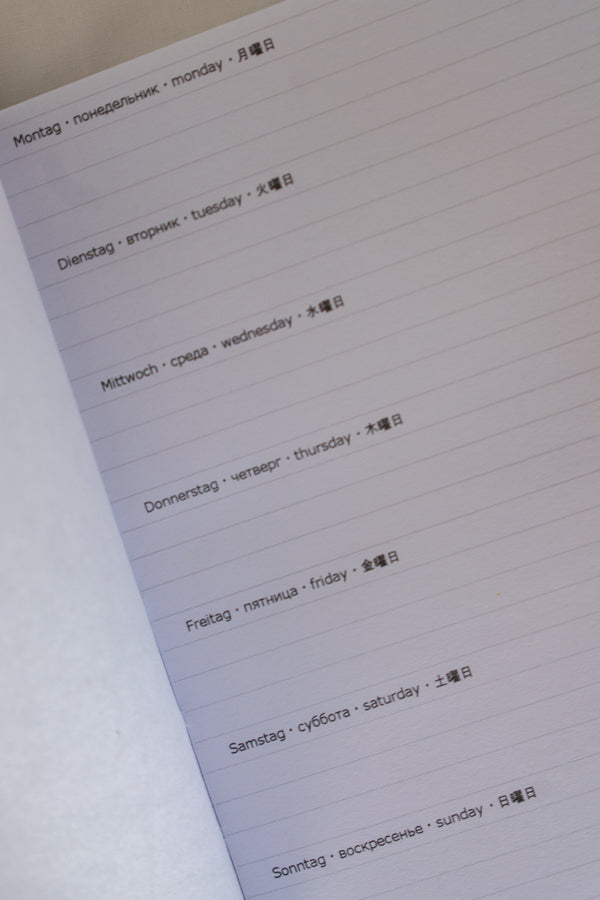 Montag · понедельник · monday · 月曜日
Dienstag · вторник · tuesday · 火曜日
Mittwoch · среда · wednesday · 水曜日
Donnerstag · четверг · thursday · 木曜日
Freitag · пятница · friday · 金曜日
Samstag · суббота · saturday · 土曜日
Sonntag · воскресенье · sunday · 日曜日